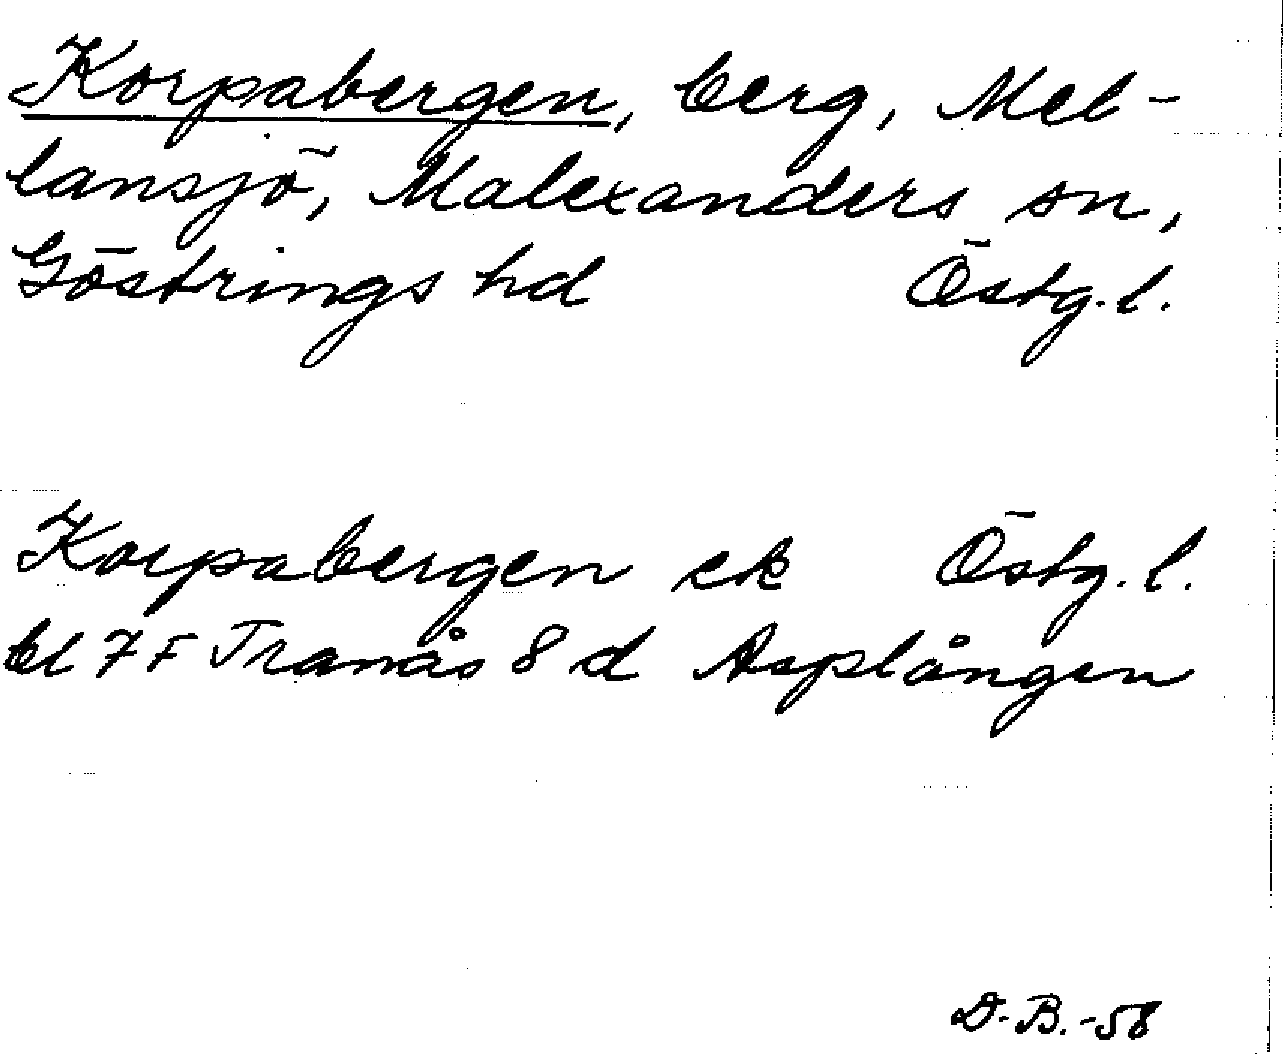 Korpabergen, berg, Mel-
lansjö, Malexanders sn,
Göstrings hd Östg.l.
Korpabergen ek Östg.l.
bl 7 F Tranås 8 d Asplången
D.B.-58